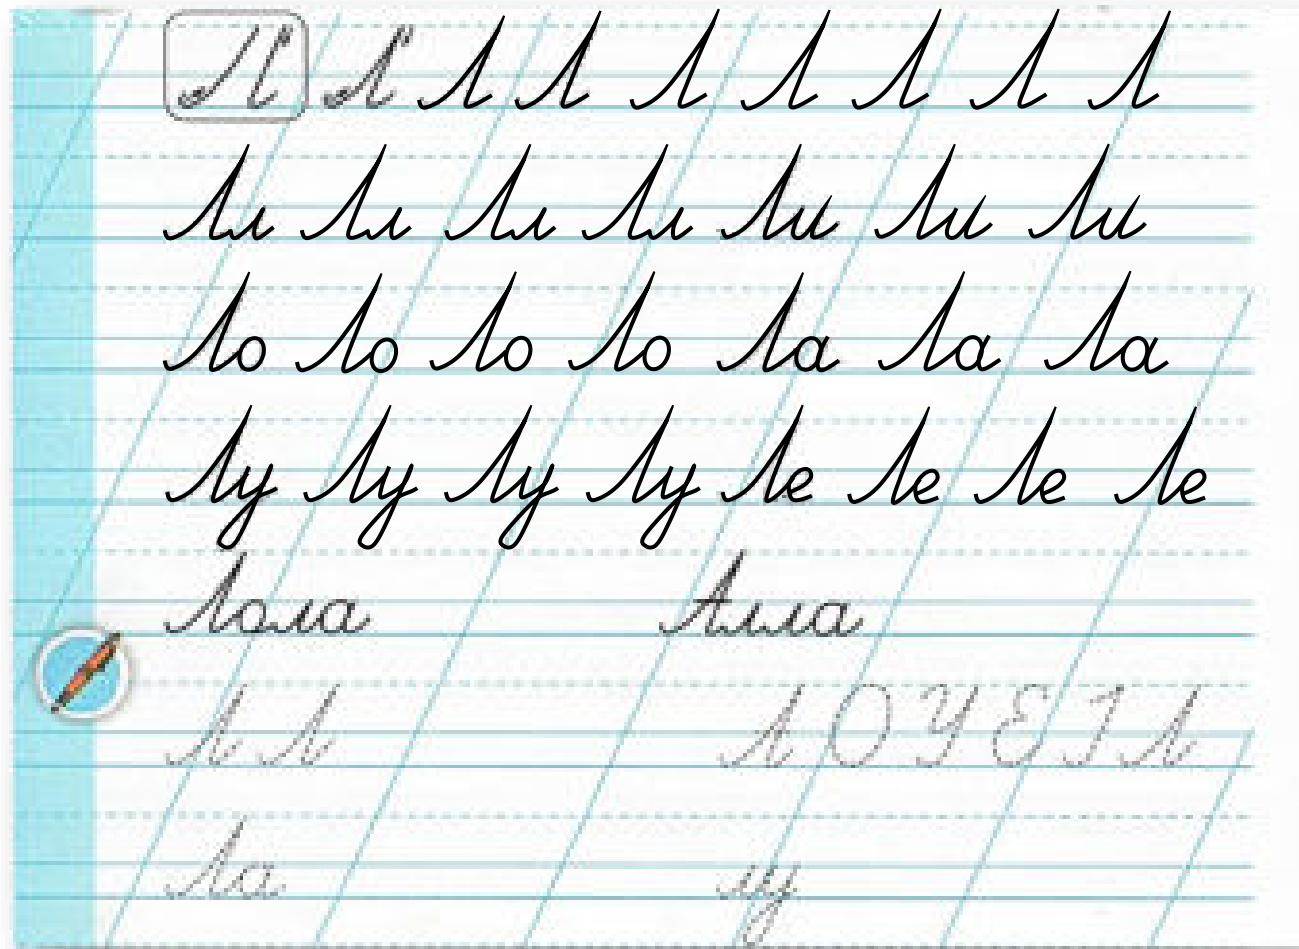 Л Л Л Л Л Л Л Л Л
Лл Лл Лл Лл Ли Ли Ли
Ло Ло Ло Ло Ла Ла Ла
Лу Лу Лу Лу Ле Ле Ле Ле
Лола Алла
Л Л Л О У Е Г Л
Ла лу